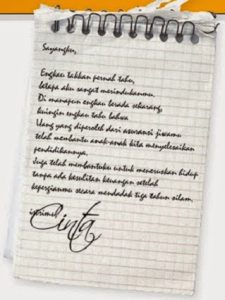 Sayangku,
Engkau takkan pernah tahu,
betapa aku sangat merindukanmu.
Di manapun engkau berada sekarang,
kuingin engkau tahu bahwa
Uang yang diperoleh dari asuransi jiwamu
telah membantu anak-anak kita menyelesaikan
pendidikannya,
Juga telah membantuku untuk meneruskan hidup
tanpa ada kesulitan keuangan setelah
kepergianmu secara mendadak tiga tahun silam.
istrimu,
Cinta